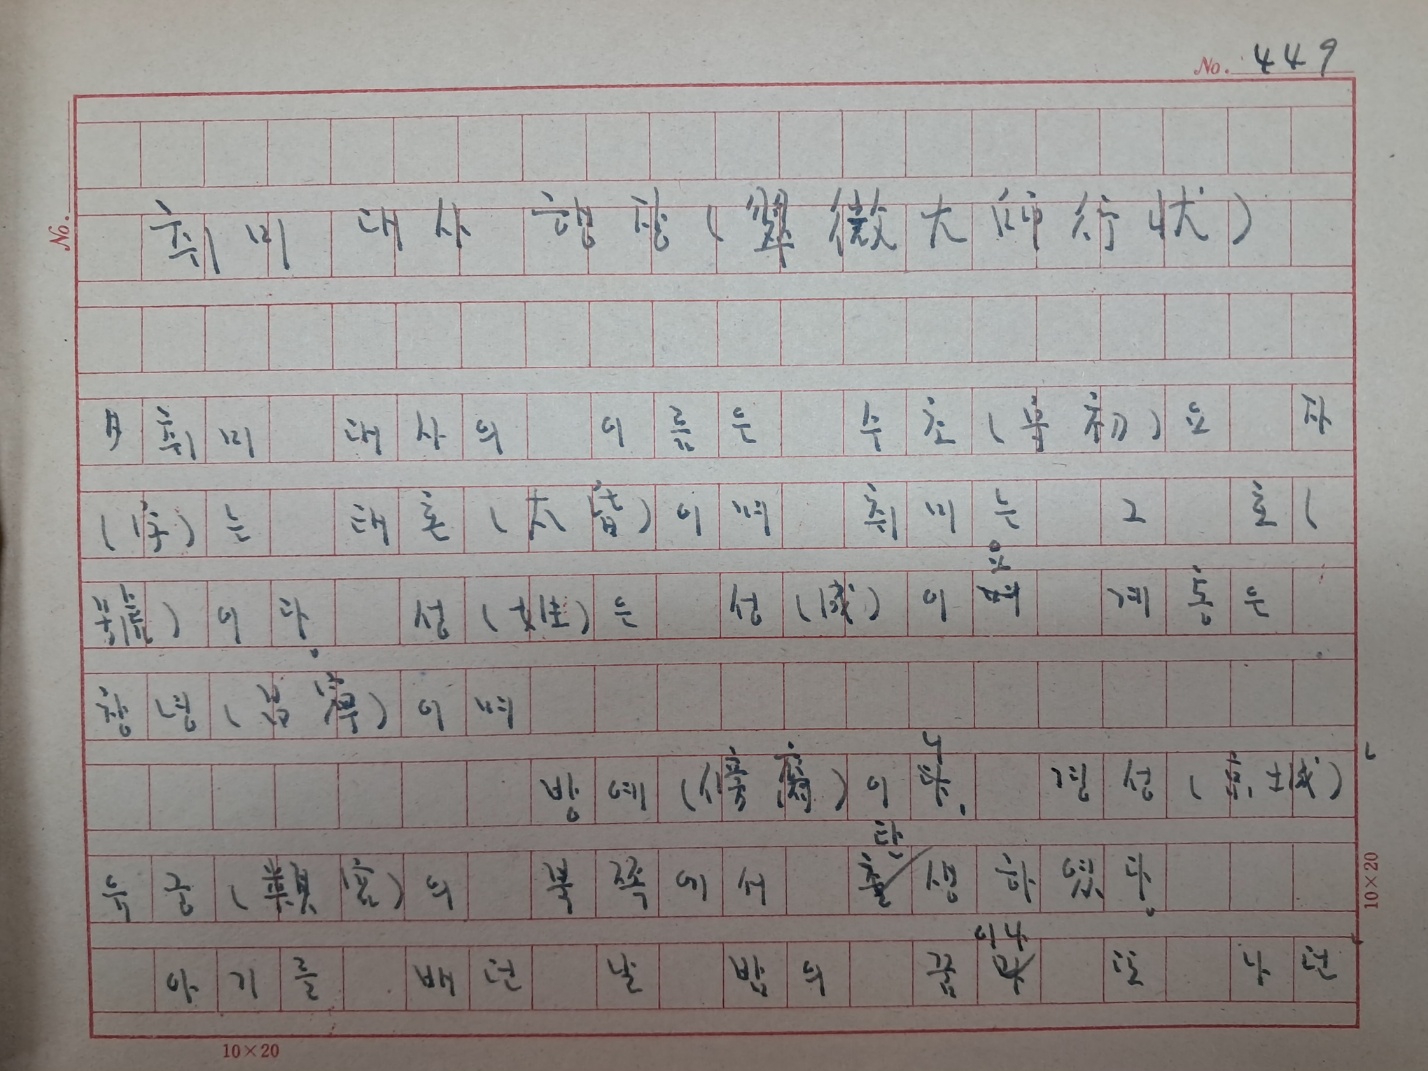 No. 449
No.
취미 대사 행장(翠微大師行狀)
취미 대사의 이름은 수초(守初)요 자
(字)는 태혼(太昏)이며 취미는 그 호(
號)이다. 성(姓)은 성(成)이요 계통은
창녕(昌寧)이며
방예(傍裔)이니 경성(京城)
(頖宮)의 북쪽에서 탄생하였다.
아기를 배던 날 밤의 꿈이나 또 나던
10×20
10×20